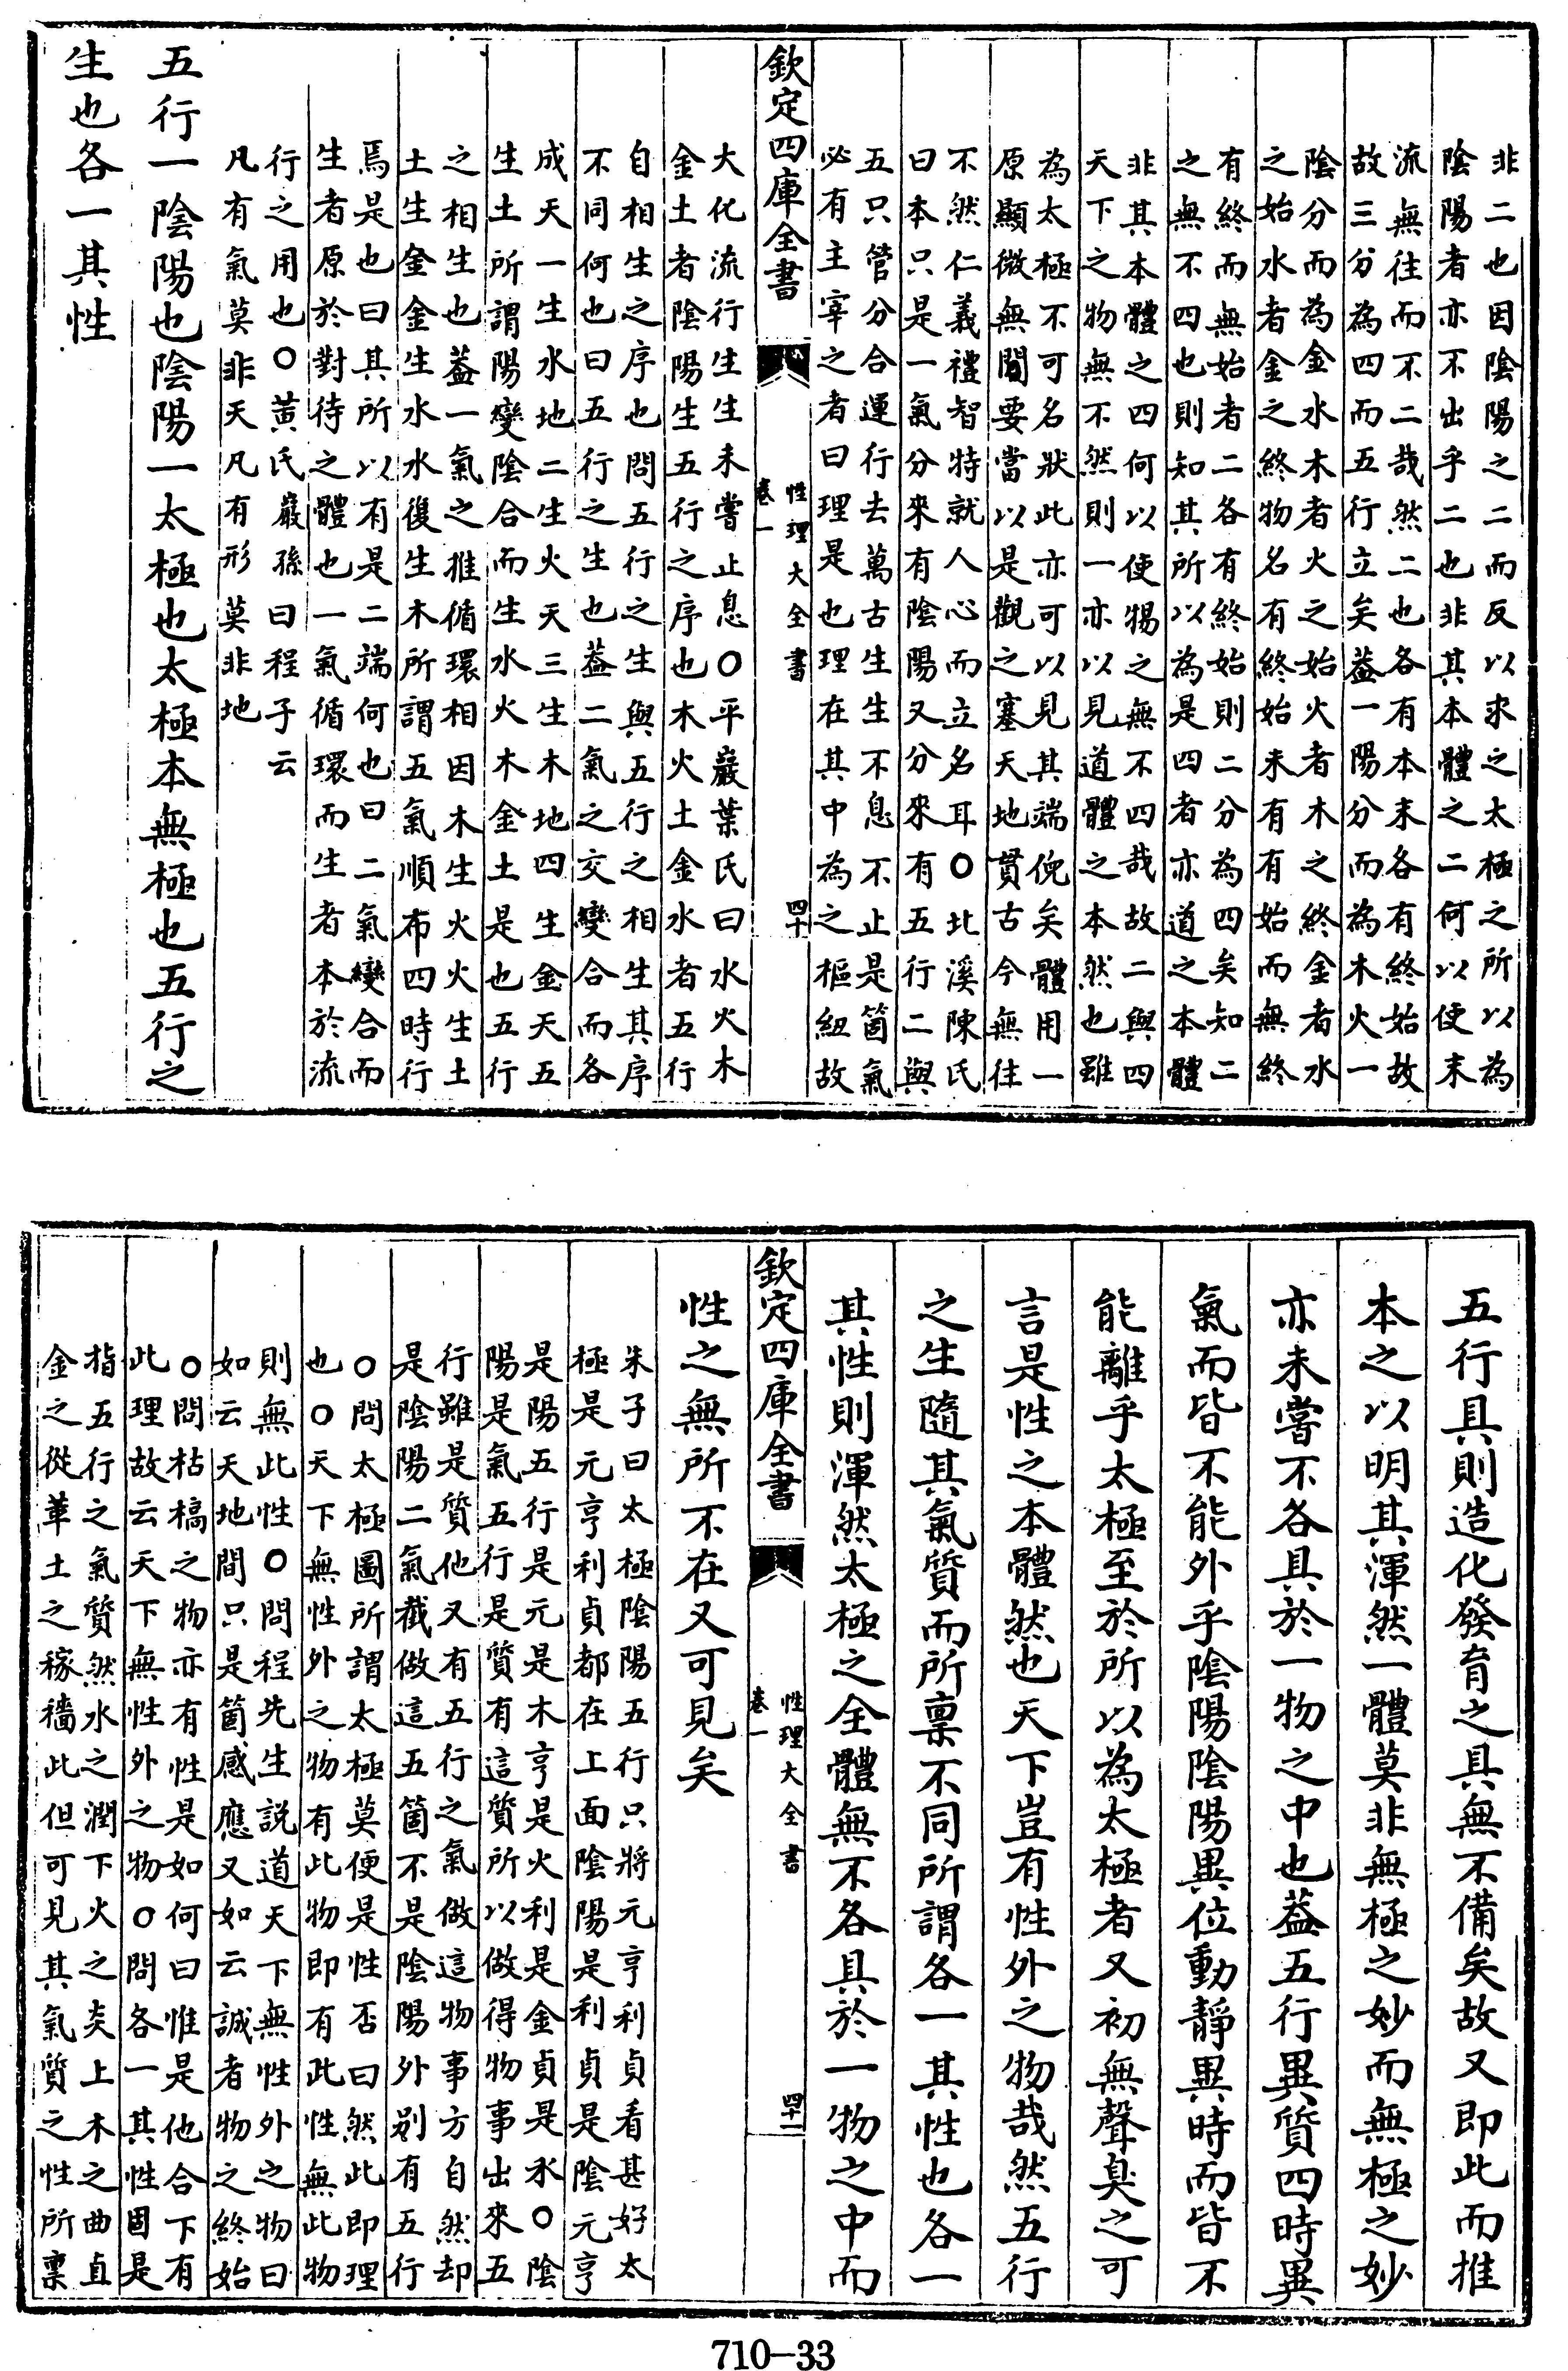 非二也因陰陽之二而反以求之太極之所以為
陰陽者亦不出乎二也非其本體之二何以使末
流無往而不二哉然二也各有本末各有終始故
故三分為四而五行立矣葢一陽分而為木火一
陰分而為金水木者火之始火者木之終金者水
之始水者金之終物名有終始未有有始而無終
有終而無始者二各有終始則二分為四矣知二
之無不四也則知其所以為是四者亦道之本體
非其本體之四何以使物之無不四哉故二與四
天下之物無不然則一亦以見道體之本然也雖
為太極不可名狀此亦可以見其端倪矣體用一
原顯微無間要當以是觀之塞天地貫古今無往
不然仁義禮智特就人心而立名耳○北溪陳氏
曰本只是一氣分來有陰陽又分來有五行二與
五只管分合運行去萬古生生不息不止是箇氣
必有主宰之者曰理是也理在其中為之樞紐故
欽定四庫全書
性理大全書
卷一
四十
大化流行生生未嘗止息○平巖葉氏曰水火木
金土者陰陽生五行之序也木火土金水者五行
自相生之序也問五行之生與五行之相生其序
不同何也曰五行之生也葢二氣之交變合而各
成天一生水地二生火天三生木地四生金天五
生土所謂陽變陰合而生水火木金土是也五行
之相生也葢一氣之推循環相因木生火火生土
土生金金生水水復生木所謂五氣順布四時行
焉是也曰其所以有是二端何也曰二氣變合而
生者原於對待之體也一氣循環而生者本於流
行之用也○黄氏巖孫曰程子云
凡有氣莫非天凡有形莫非地
五行一陰陽也陰陽一太極也太極本無極也五行之
生也各一其性
五行具則造化發育之具無不備矣故又即此而推
本之以明其渾然一體莫非無極之妙而無極之妙
亦未嘗不各具於一物之中也葢五行異質四時異
氣而皆不能外乎陰陽陰陽異位動靜異時而皆不
能離乎太極至於所以為太極者又初無聲臭之可
言是性之本體然也天下豈有性外之物哉然五行
之生隨其氣質而所稟不同所謂各一其性也各一
其性則渾然太極之全體無不各具於一物之中而
欽定四庫全書
性理大全書
卷一
四十一
性之無所不在又可見矣
朱子曰太極陰陽五行只將元亨利貞看甚好太
極是元亨利貞都在上面陰陽是利貞是陰元亨
是陽五行是元是木亨是火利是金貞是水○陰
陽是氣五行是質有這質所以做得物事出來五
行雖是質他又有五行之氣做這物事方自然却
是陰陽二氣截做這五箇不是陰陽外别有五行
○問太極圖所謂太極莫便是性否曰然此即理
也○天下無性外之物有此物即有此性無此物
則無此性○問程先生説道天下無性外之物曰
如云天地間只是箇感應又如云誠者物之終始
○問枯槁之物亦有性是如何曰惟是他合下有
此理故云天下無性外之物○問各一其性固是
指五行之氣質然水之潤下火之炎上木之曲直
金之從革土之稼穡此但可見其氣質之性所稟
710-33